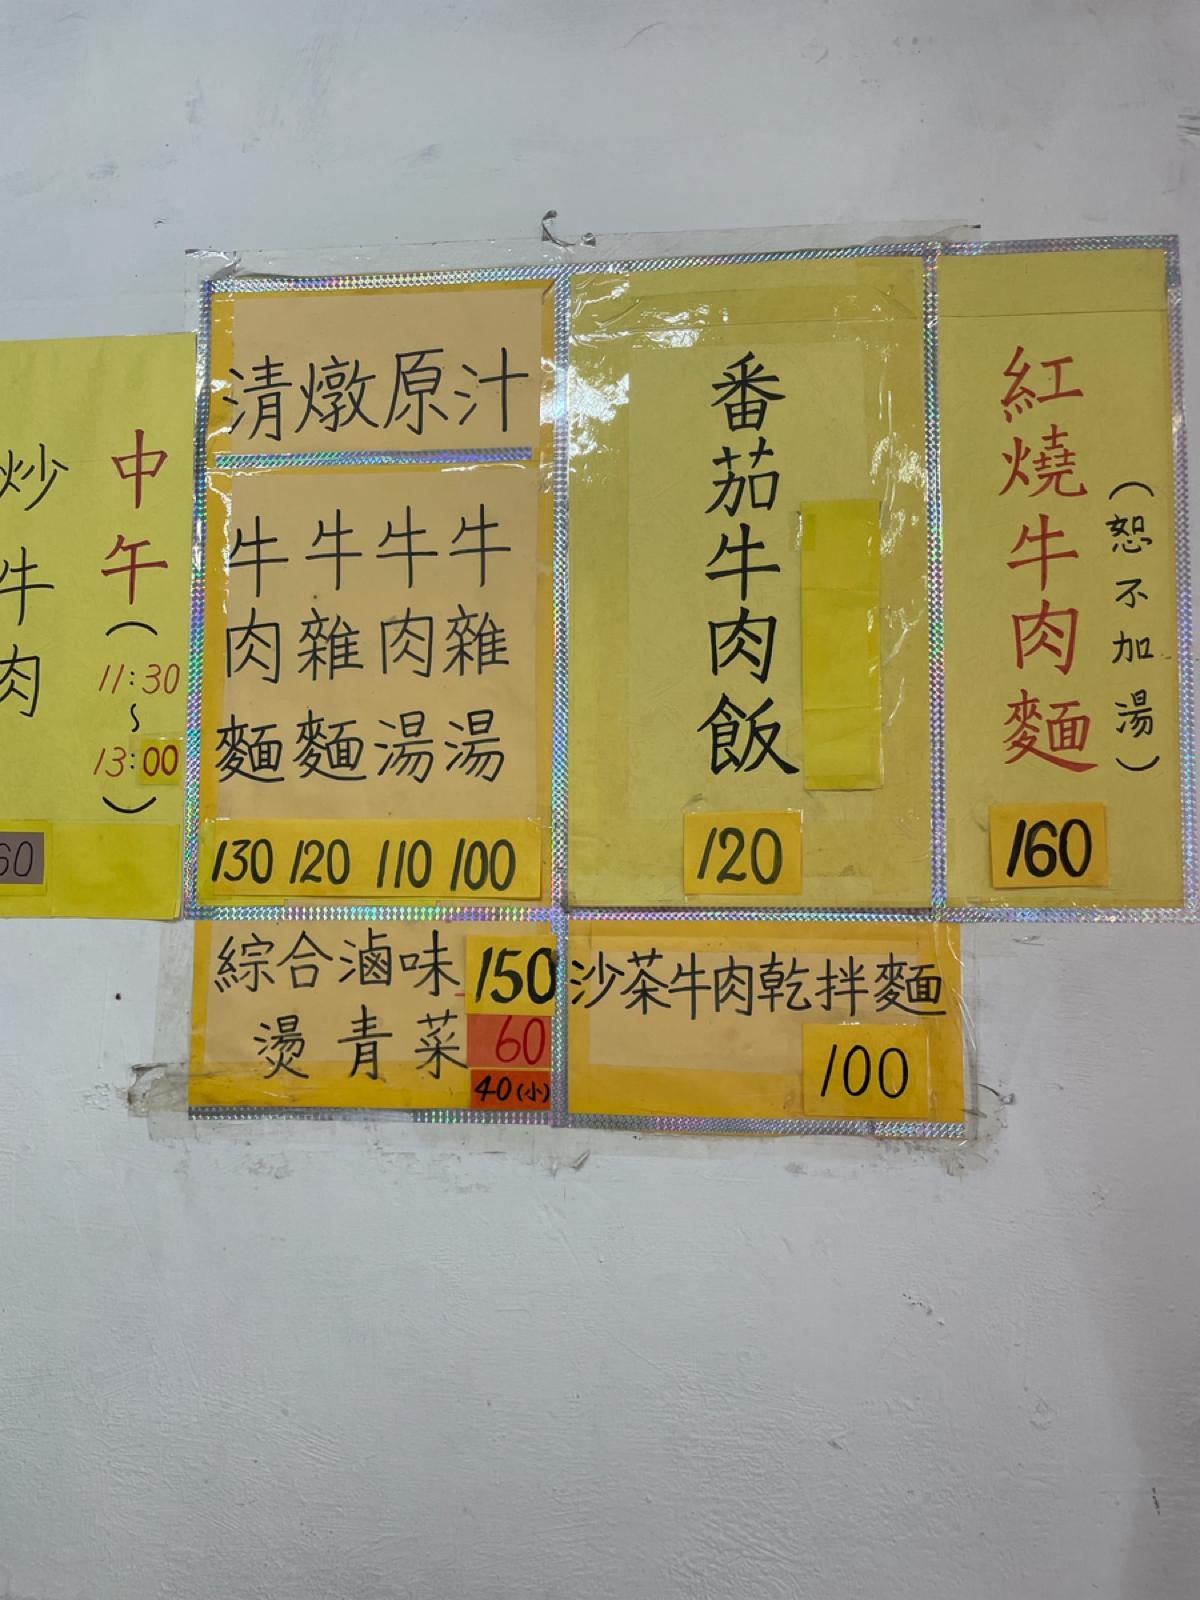 紅燒牛肉麵
(恕不加湯)
160
番茄牛肉飯
120
清燉原汁
牛肉麵 130
牛雜麵 120
牛肉湯 110
牛雜湯 100
中午(11:30~13:00)
炒牛肉
60
綜合滷味 150
燙青菜 60
40(小)
沙茶牛肉乾拌麵
100